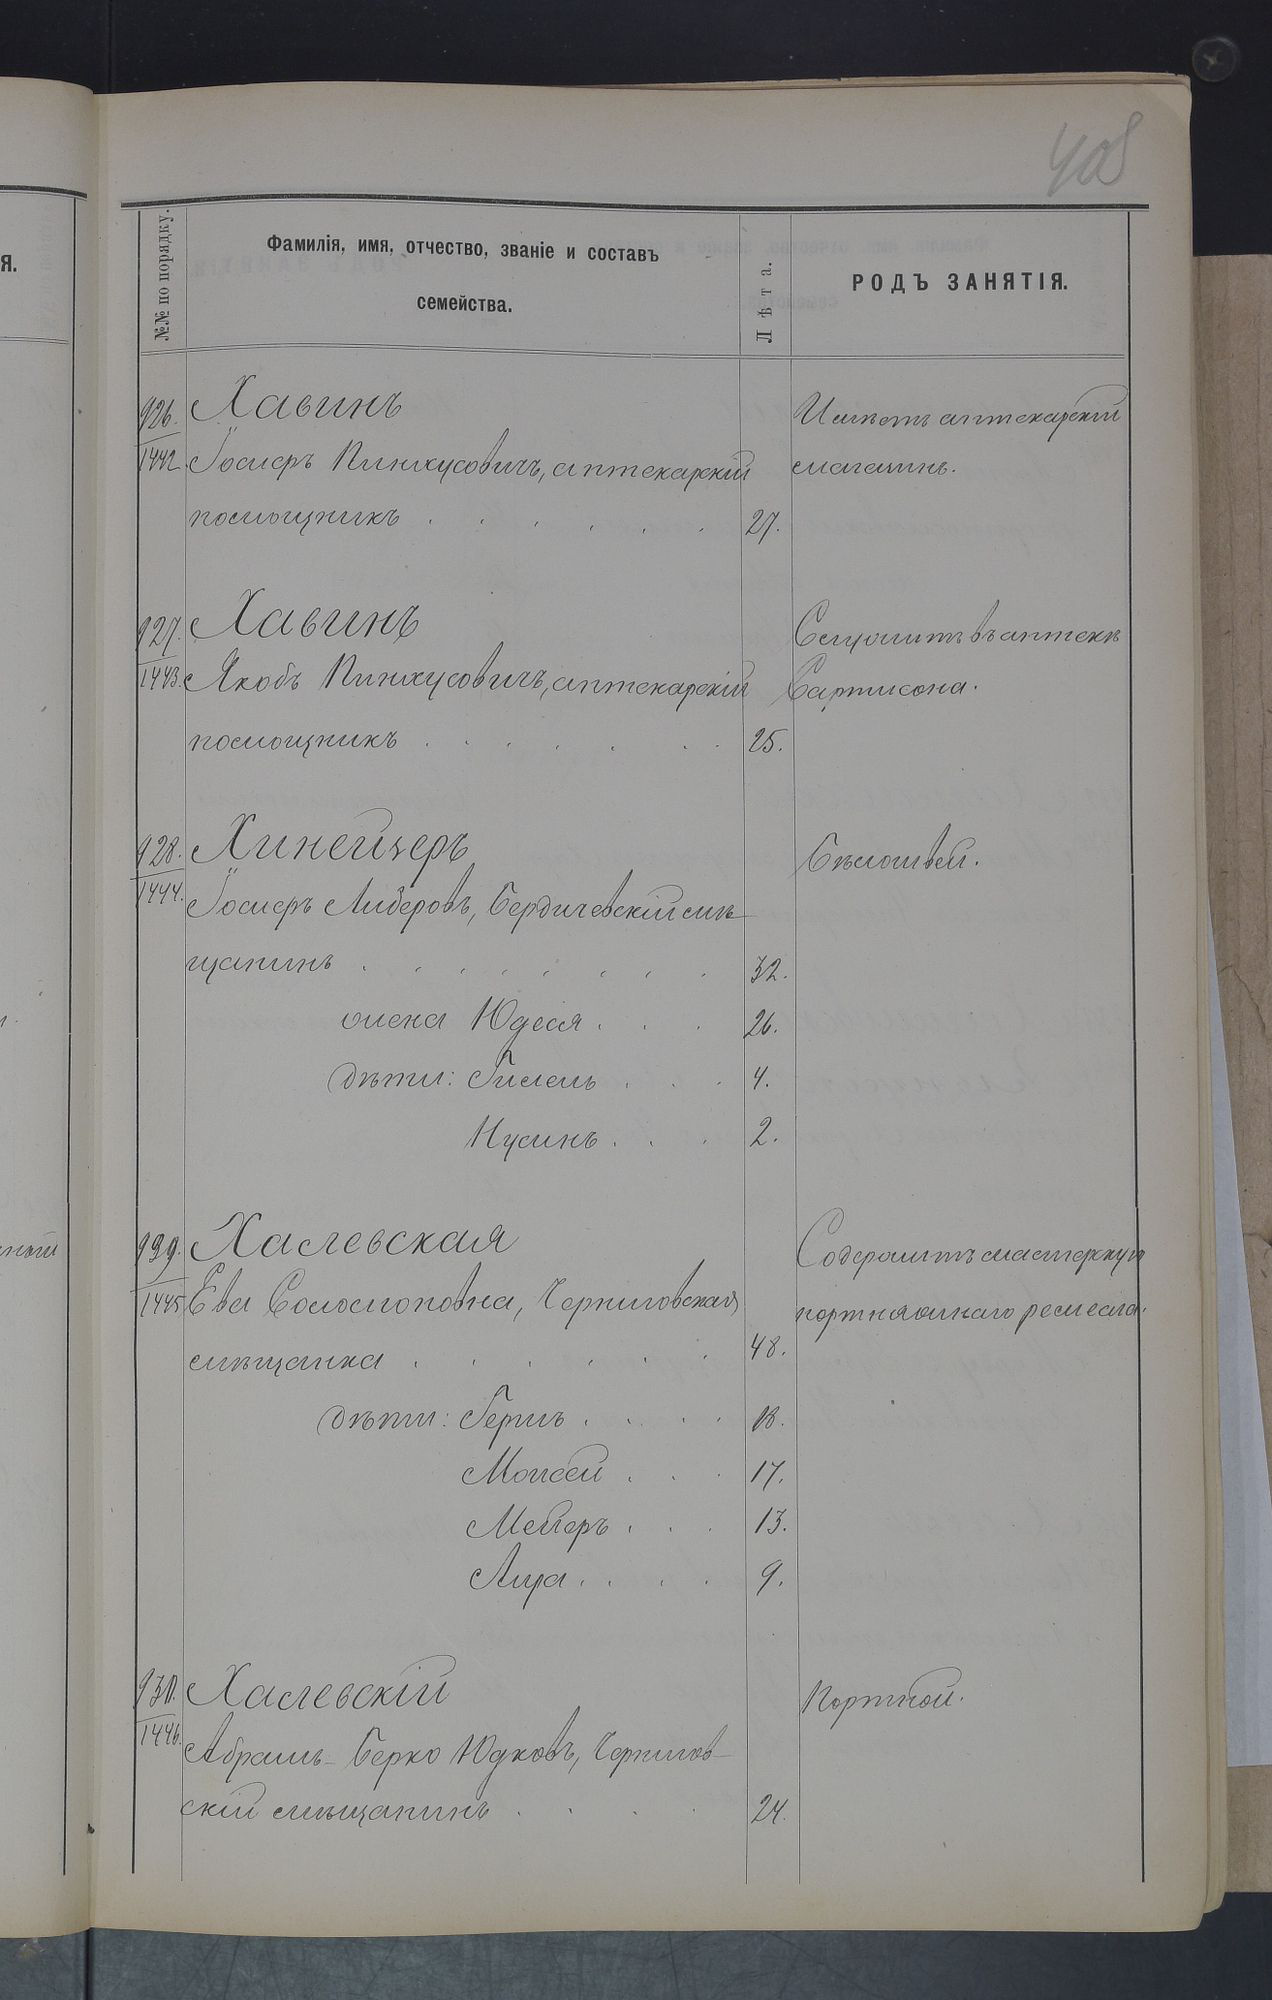 408
№№ по порядку.
Фамилія, имя, отчество, званіе и составъ
семейства.
Лѣта.
РОДЪ ЗАНЯТІЯ.
я.
926.
Хавинъ
Имѣетъ аптекарскій
1442
Іосиръ Пинхусовичъ, аптекарскій
магазинъ.
помощникъ . . . . . . 27.
927.
Хавинъ
Служитъ въ аптекѣ
1443.
Якобъ Пинхусовичъ, аптекарскій
помощникъ . . . . . . 25.
928.
Хинейзеръ
Бѣлошвей.
1444.
Бердичевскій мѣ-
щанинъ . . . . . . . 32.
жена Юдеся . . . 26.
дѣти: Гилель . . . 4.
Нусинъ . . . 2.
929.
Халевская
Содержитъ мастерскую
1445
Ева Соломоновна, Черниговская
портняжнаго ремесла.
мѣщанка . . . . . . 48.
дѣти: Гершъ . . . . 18.
Моисей . . . 17.
Мейеръ . . . 13.
9.
930.
Халевскій
Портной.
1446.
Абрамъ-Берко Юдковъ, Чернигов-
скій мѣщанинъ . . . . 24.